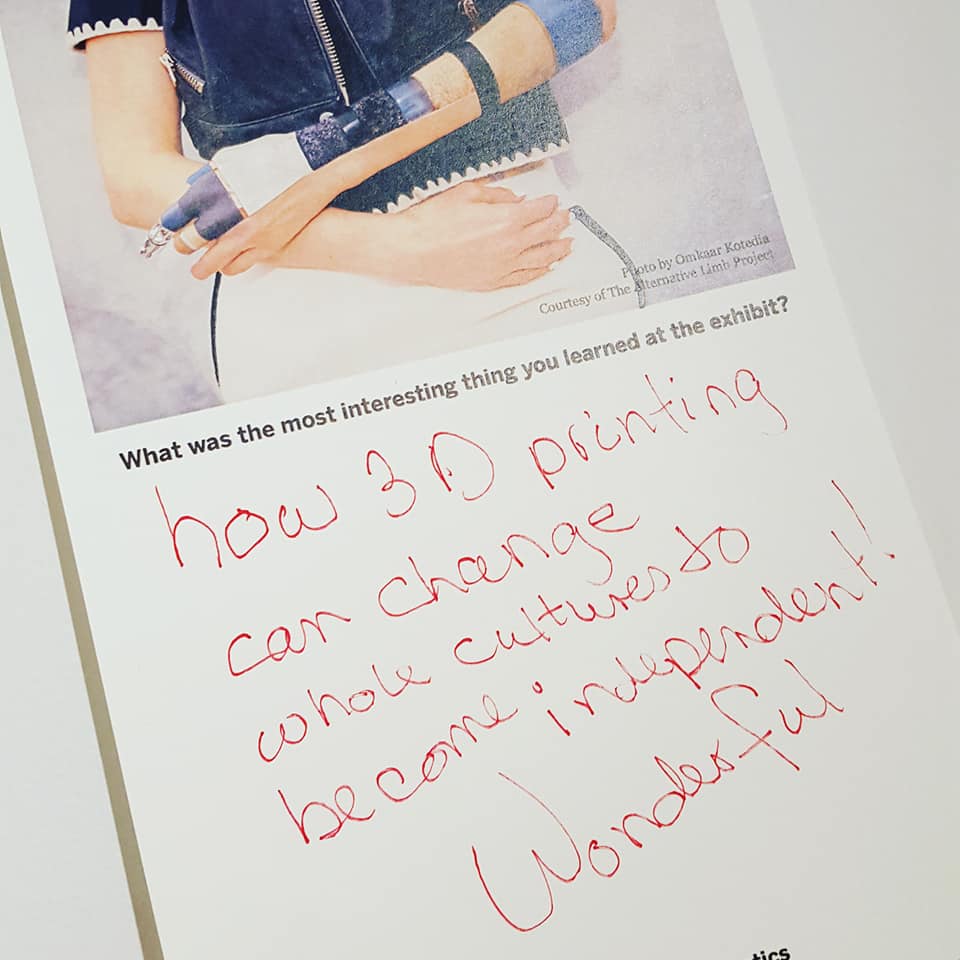 Photo by Omkaar Kotedia
Courtesy of The Alternative Limb Project
What was the most interesting thing you learned at the exhibit?
how 3D printing
can change
whole cultures to
become independent!
Wonderful
tics